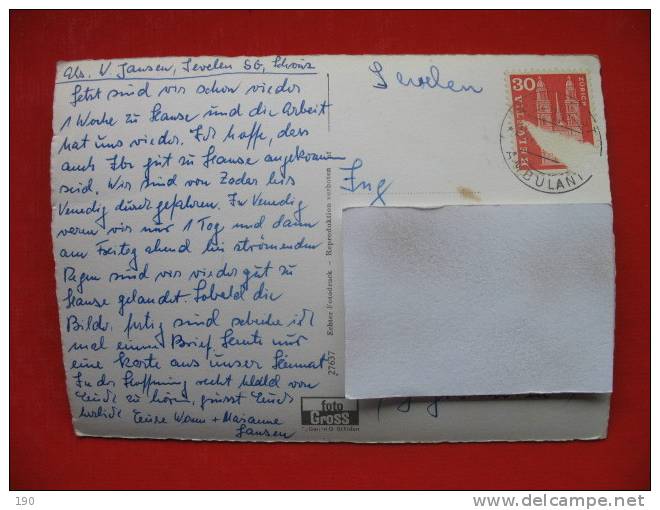 Abs. W. Jansen, Sevelen SG, Schweiz
Jetzt sind wir schon wieder
1 Woche zu Hause und die Arbeit
hat uns wieder. Ich hoffe, dass
auch Ihr gut zu Hause angekommen
seid. Wir sind von Zadar bis
Venedig durchgefahren. In Venedig
waren wir nur 1 Tag und dann
am Freitag abend bei strömendem
Regen sind wir wieder gut zu
Hause gelandet. Sobald die
Bilder fertig sind schreibe ich
mal einen Brief. Heute nur
eine Karte aus unser Heimat.
In der Hoffnung recht bald von
Euch zu hören, grüsst Euch
herzlich Eure + Marianne
Jansen
Sevelen
Ing
30
HELVETIA
ZÜRICH
AMBULANT
27637 Echter Fotodruck - Reproduktion verboten
foto
Gross
190
delcampe.net